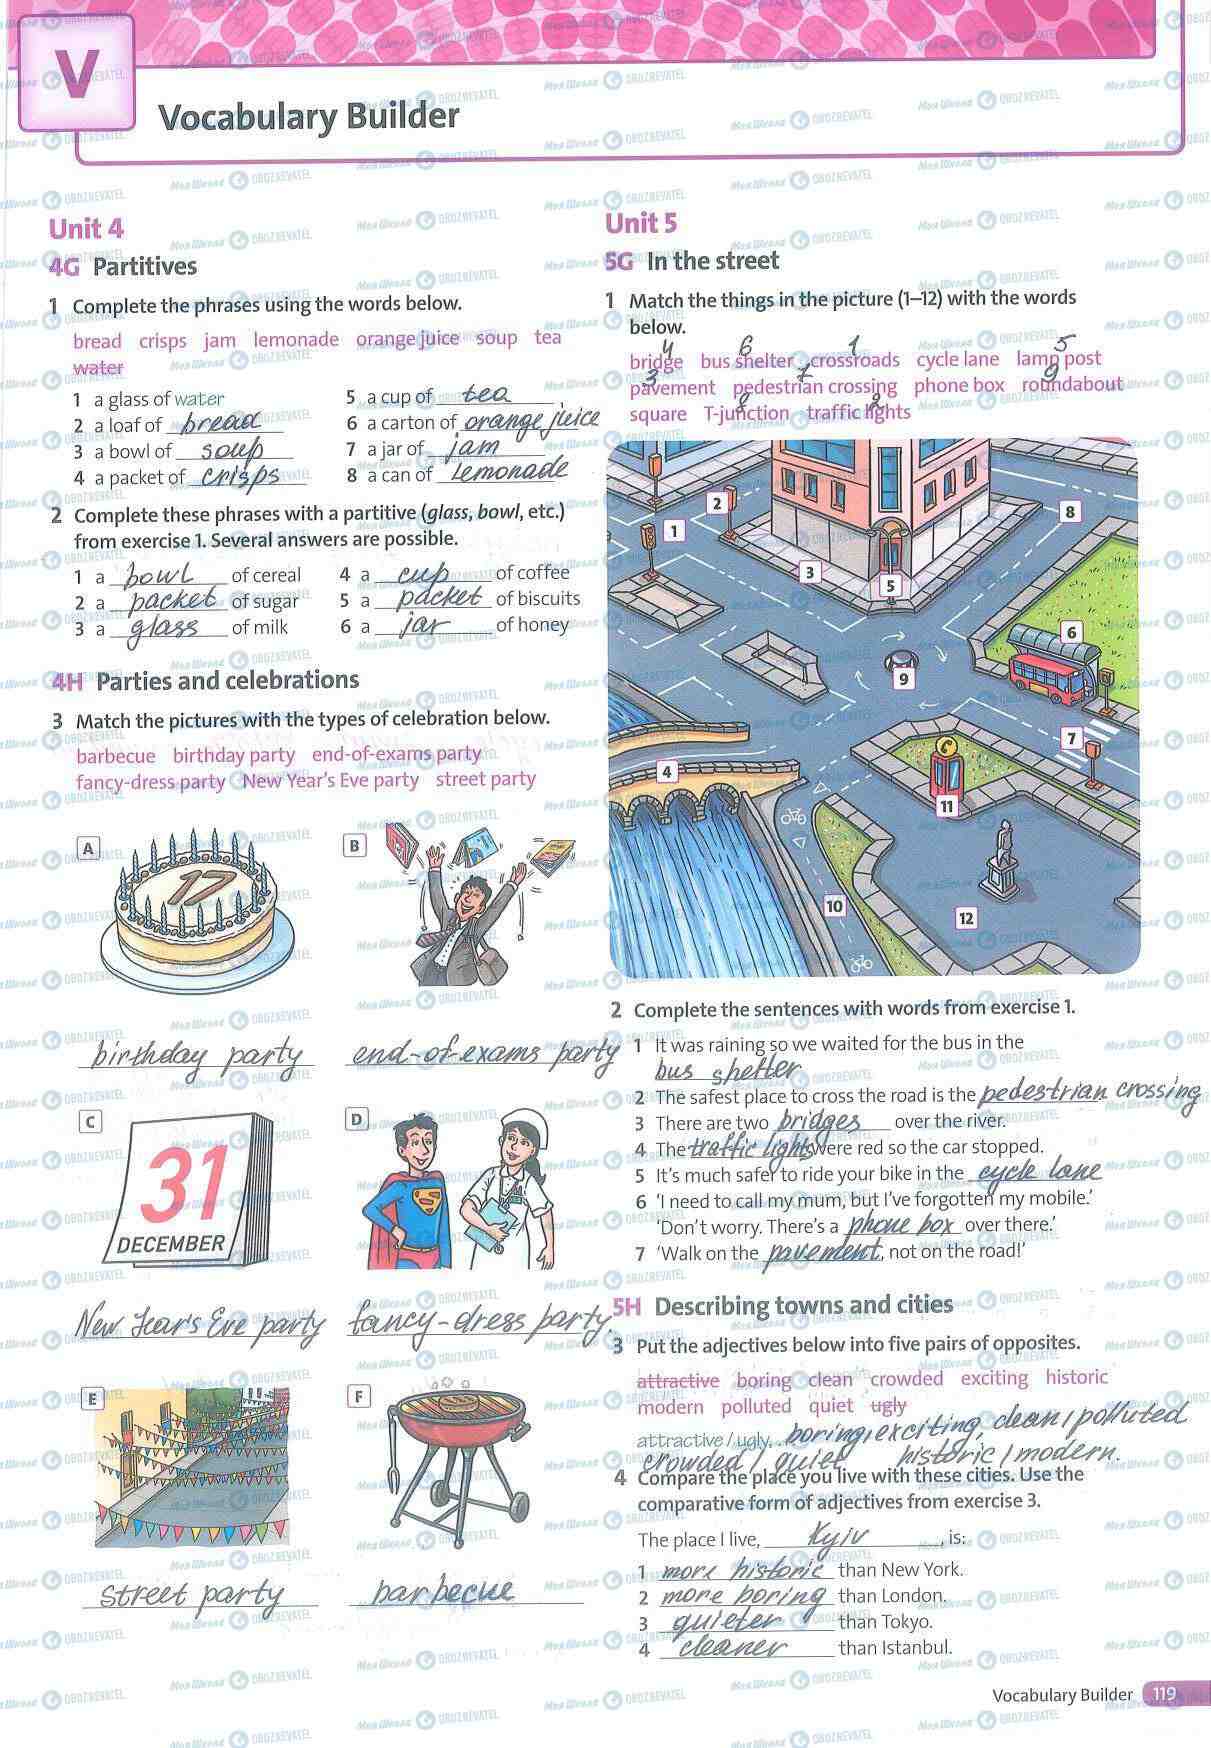 V
Vocabulary Builder
Unit 4
4G Partitives
1 Complete the phrases using the words below.
bread crisps jam lemonade orange juice soup tea
water
1 a glass of water
2 a loaf of bread
3 a bowl of soup
4 a packet of crisps
5 a cup of tea
6 a carton of orange juice
7 a jar of jam
8 a can of lemonade
2 Complete these phrases with a partitive (glass, bowl, etc.)
from exercise 1. Several answers are possible.
1 a bowl of cereal
2 a packet of sugar
3 a glass of milk
4 a cup of coffee
5 a packet of biscuits
6 a jar of honey
4H Parties and celebrations
3 Match the pictures with the types of celebration below.
barbecue birthday party end-of-exams party
fancy-dress party New Year's Eve party street party
A
17
B
birthday party
end-of-exams party
C
31
DECEMBER
D
New Year's Eve party
fancy-dress party
E
F
street party
barbecue
Unit 5
5G In the street
1 Match the things in the picture (1–12) with the words
below.
4 6 1 5
bridge bus shelter crossroads cycle lane lamp post
3 7 9
pavement pedestrian crossing phone box roundabout
8 2
square T-junction traffic lights
1
2
3
4
5
6
7
8
9
10
11
12
2 Complete the sentences with words from exercise 1.
1 It was raining so we waited for the bus in the
bus shelter
2 The safest place to cross the road is the pedestrian crossing
3 There are two bridges over the river.
4 The traffic lights were red so the car stopped.
5 It's much safer to ride your bike in the cycle lane
6 'I need to call my mum, but I've forgotten my mobile.'
'Don't worry. There's a phone box over there.'
7 'Walk on the pavement, not on the road!'
5H Describing towns and cities
3 Put the adjectives below into five pairs of opposites.
attractive boring clean crowded exciting historic
modern polluted quiet ugly
attractive / ugly, boring, exciting, clean / polluted
crowded / quiet historic / modern.
4 Compare the place you live with these cities. Use the
comparative form of adjectives from exercise 3.
The place I live, Kyiv, is:
1 more historic than New York.
2 more boring than London.
3 quieter than Tokyo.
4 cleaner than Istanbul.
Vocabulary Builder 119
Моя Школа OBOZREVATEL